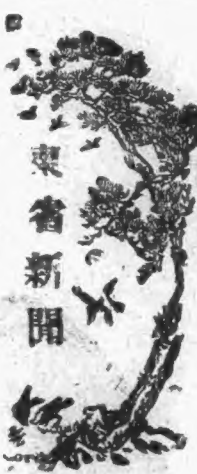 東省新聞